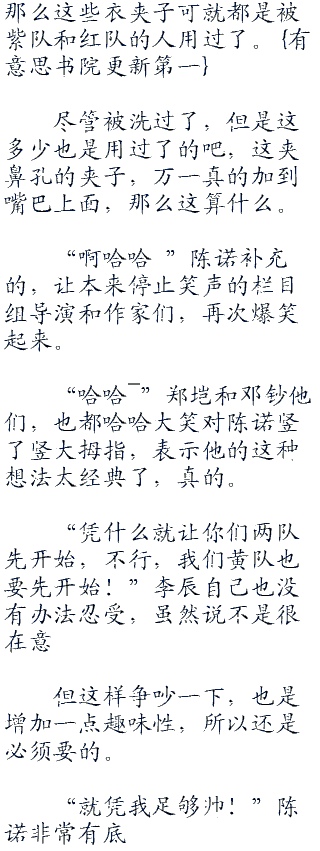 那么这些衣夹子可就都是被
紫队和红队的人用过了。{有
意思书院更新第一}
尽管被洗过了，但是这
多少也是用过了的吧，这夹
鼻孔的夹子，万一真的加到
嘴巴上面，那么这算什么。
“啊哈哈 ”陈诺补充
的，让本来停止笑声的栏目
组导演和作家们，再次爆笑
起来。
“哈哈¯”郑垲和邓钞他
们，也都哈哈大笑对陈诺竖
了竖大拇指，表示他的这种
想法太经典了，真的。
“凭什么就让你们两队
先开始，不行，我们黄队也
要先开始！”李辰自己也没
有办法忍受，虽然说不是很
在意
但这样争吵一下，也是
增加一点趣味性，所以还是
必须要的。
“就凭我足够帅！”陈
诺非常有底